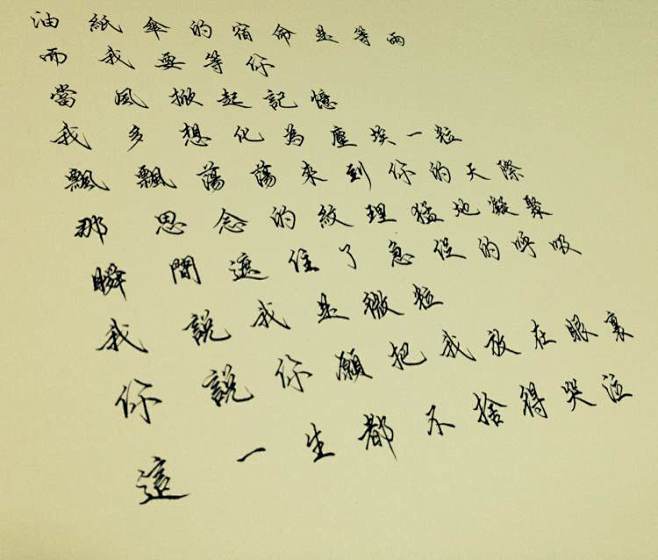 油紙傘的宿命是等雨
而我要等你
當風掀起記憶
我多想化為塵埃一粒
飄飄蕩蕩來到你的天際
那思念的紋理猛地凝聚
瞬間遮住了急促的呼吸
我說我是微粒
你說你願把我放在眼裏
這一生都不捨得哭泣